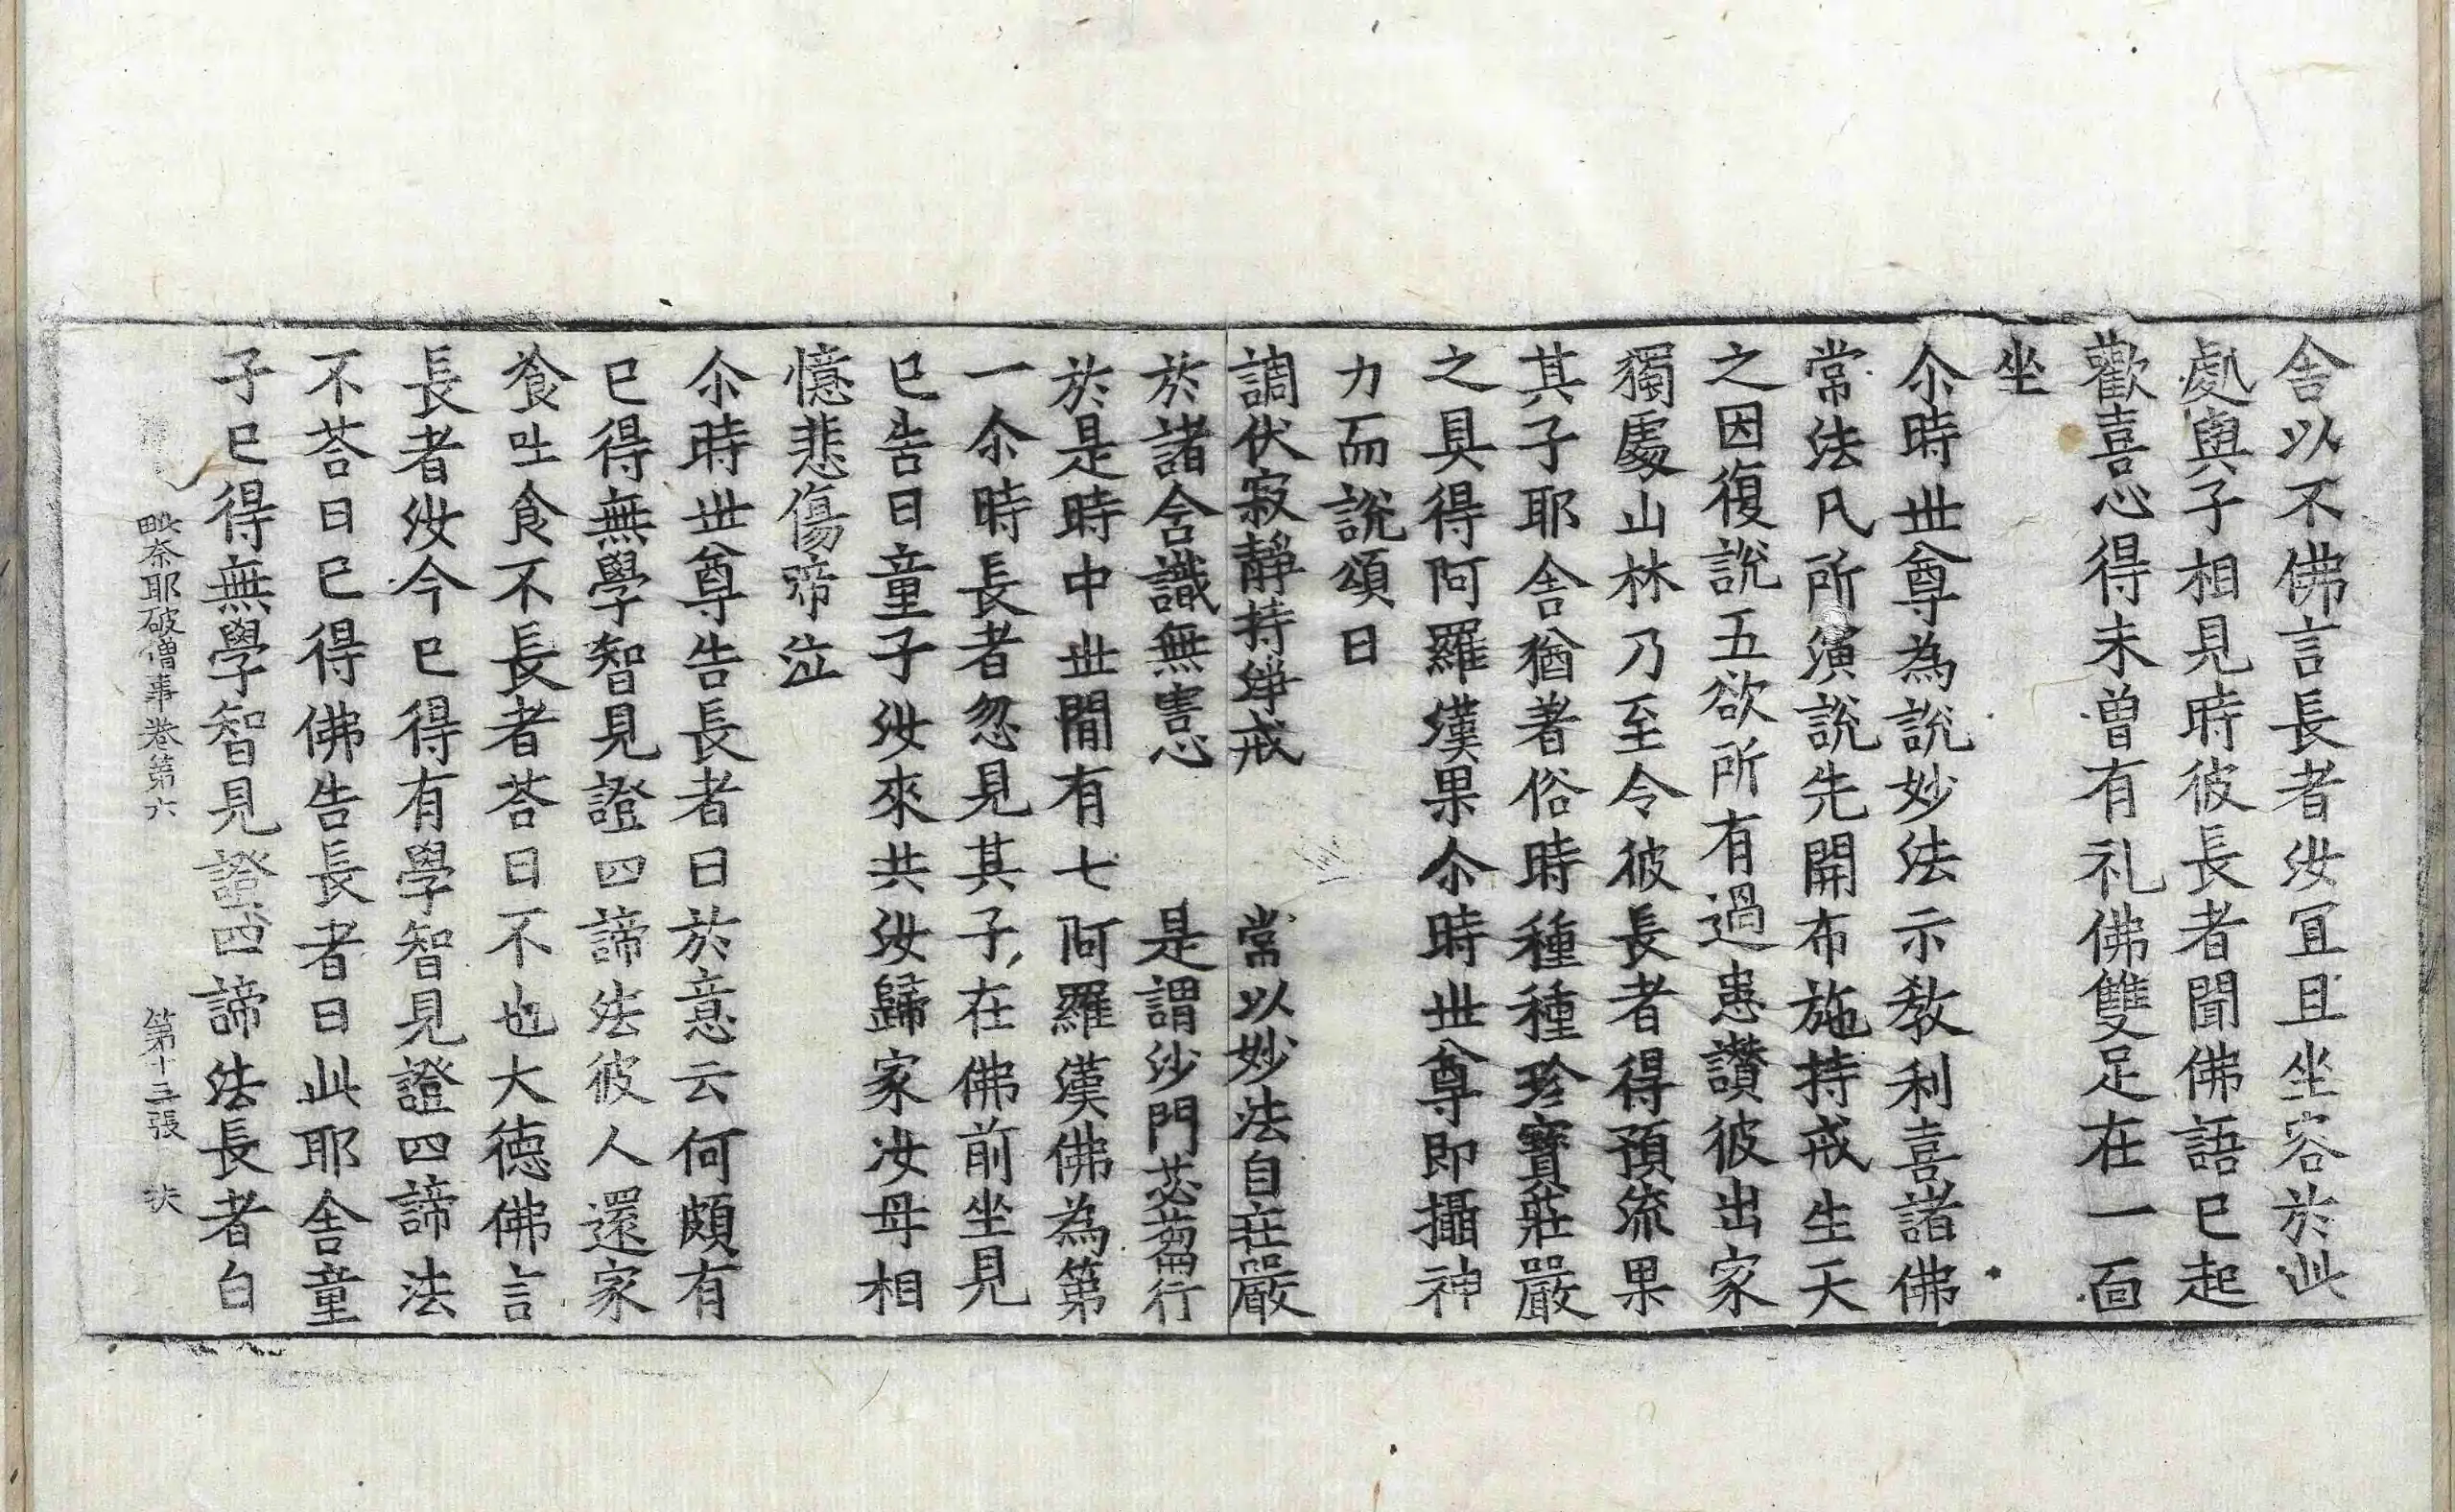 舍以不佛言長者汝冝且坐容於此
處與子相見時彼長者聞佛語已起
歡喜心得未曾有礼佛雙足在一面
坐
尒時世尊為說妙法示教利喜諸佛
常法凡所演說先開布施持戒生天
之因復說五欲所有過患讃彼出家
獨處山林乃至令彼長者得預流果
其子耶舍猶著俗時種種珍寶莊嚴
之具得阿羅漢果尒時世尊即攝神
力而說頌曰
調伏寂靜持淨戒　常以妙法自莊嚴
於諸含識無害心　是謂沙門苾芻行
於是時中世間有七阿羅漢佛為第
一尒時長者忽見其子在佛前坐見
已告曰童子汝來共汝歸家汝母相
憶悲傷啼泣
尒時世尊告長者曰於意云何頗有
已得無學智見證四諦法彼人還家
飡吐食不長者荅曰不也大德佛言
長者汝今已得有學智見證四諦法
不荅曰已得佛告長者曰此耶舍童
子已得無學智見證四諦法長者白
毗奈耶破僧事卷第六　第十三張　扶